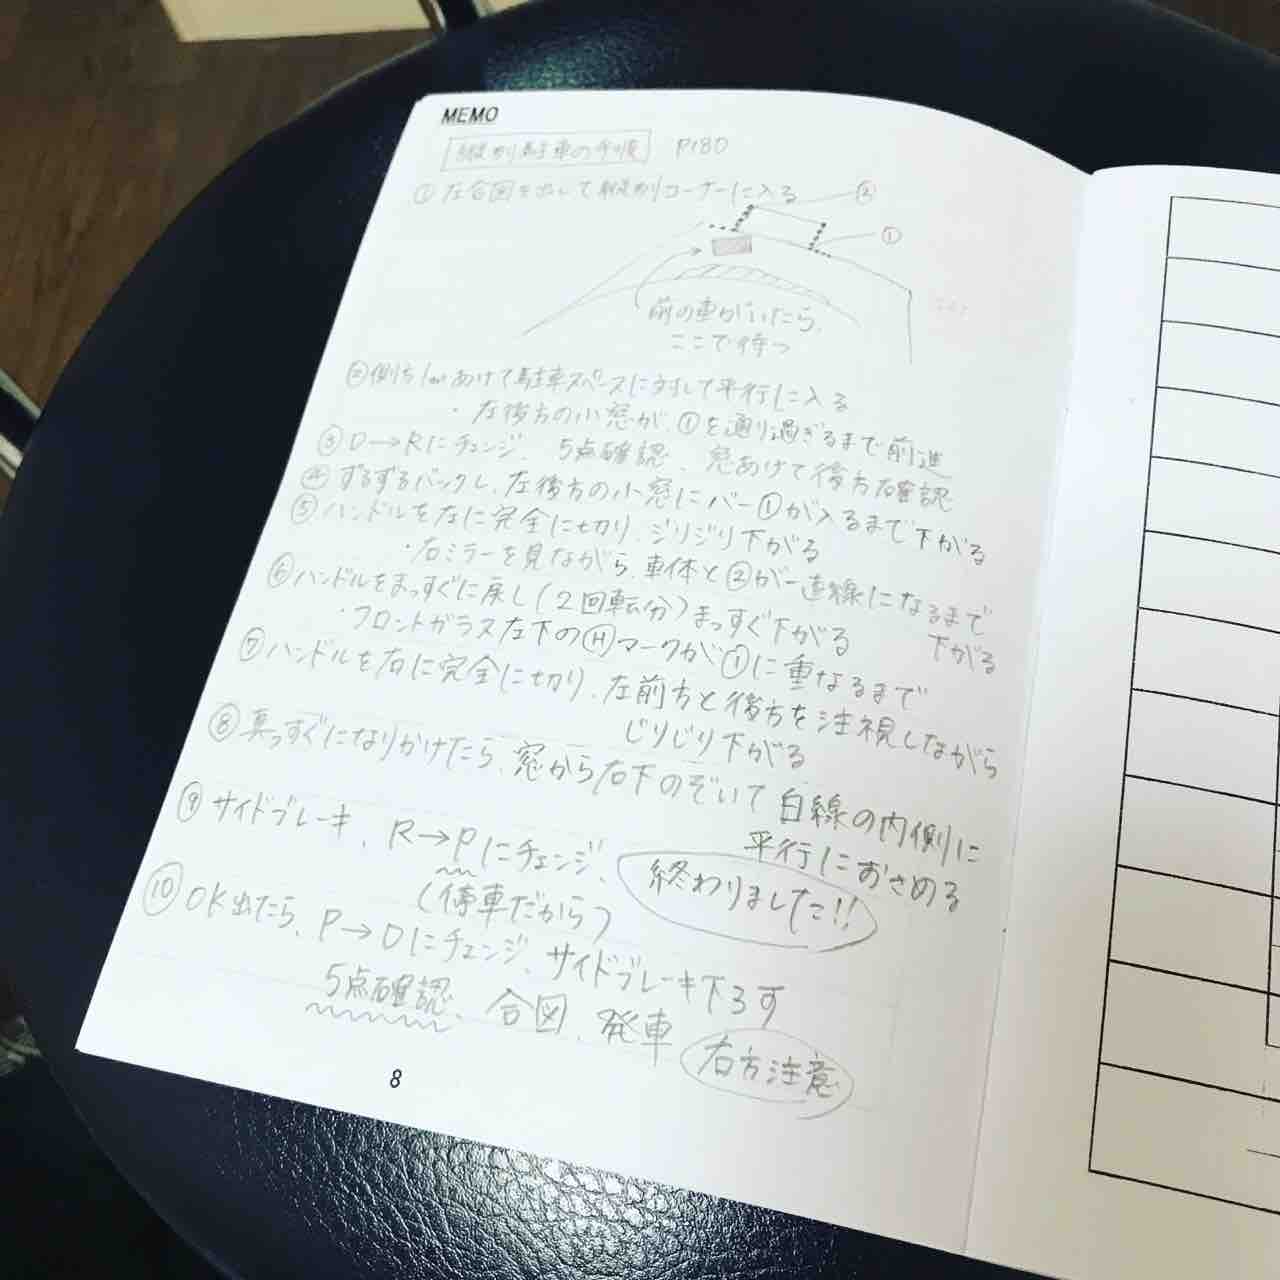 MEMO
縦列駐車の手順 P180
① 左合図を出して縦列コーナーに入る
②
①
前の車がいたら、
ここで待つ
② 側方1mあけて駐車スペースに対して平行に入る
・左後方の小窓が、①を通り過ぎるまで前進
③ D→Rにチェンジ、5点確認、窓あけて後方確認
④ ずるずるバックし、左後方の小窓にバー①が入るまで下がる
⑤ ハンドルを左に完全に切り、ジリジリ下がる
・右ミラーを見ながら、車体と②が一直線になるまで
下がる
⑥ ハンドルをまっすぐに戻し(2回転分)まっすぐ下がる
・フロントガラス左下のⒽマークが①に重なるまで
⑦ ハンドルを右に完全に切り、左前方と後方を注視しながら
じりじり下がる
⑧ 真っすぐになりかけたら、窓から右下のぞいて白線の内側に
平行におさめる
⑨ サイドブレーキ、R→Pにチェンジ、終わりました!!
(停車だから)
⑩ OK出たら、P→Dにチェンジ、サイドブレーキ下ろす
5点確認、合図、発車 右方注意
8